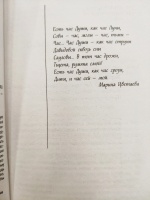 Есть час Души, как час Луны,
Совы — час, мглы — час, тьмы —
Час... Час Души — как час струны
Давидовой сквозь сны
Сауловы... В тот час дрожи,
Тщета, румяна смой!
Есть час Души, как час грозы,
Дитя, и час сей — мой.
Марина Цветаева